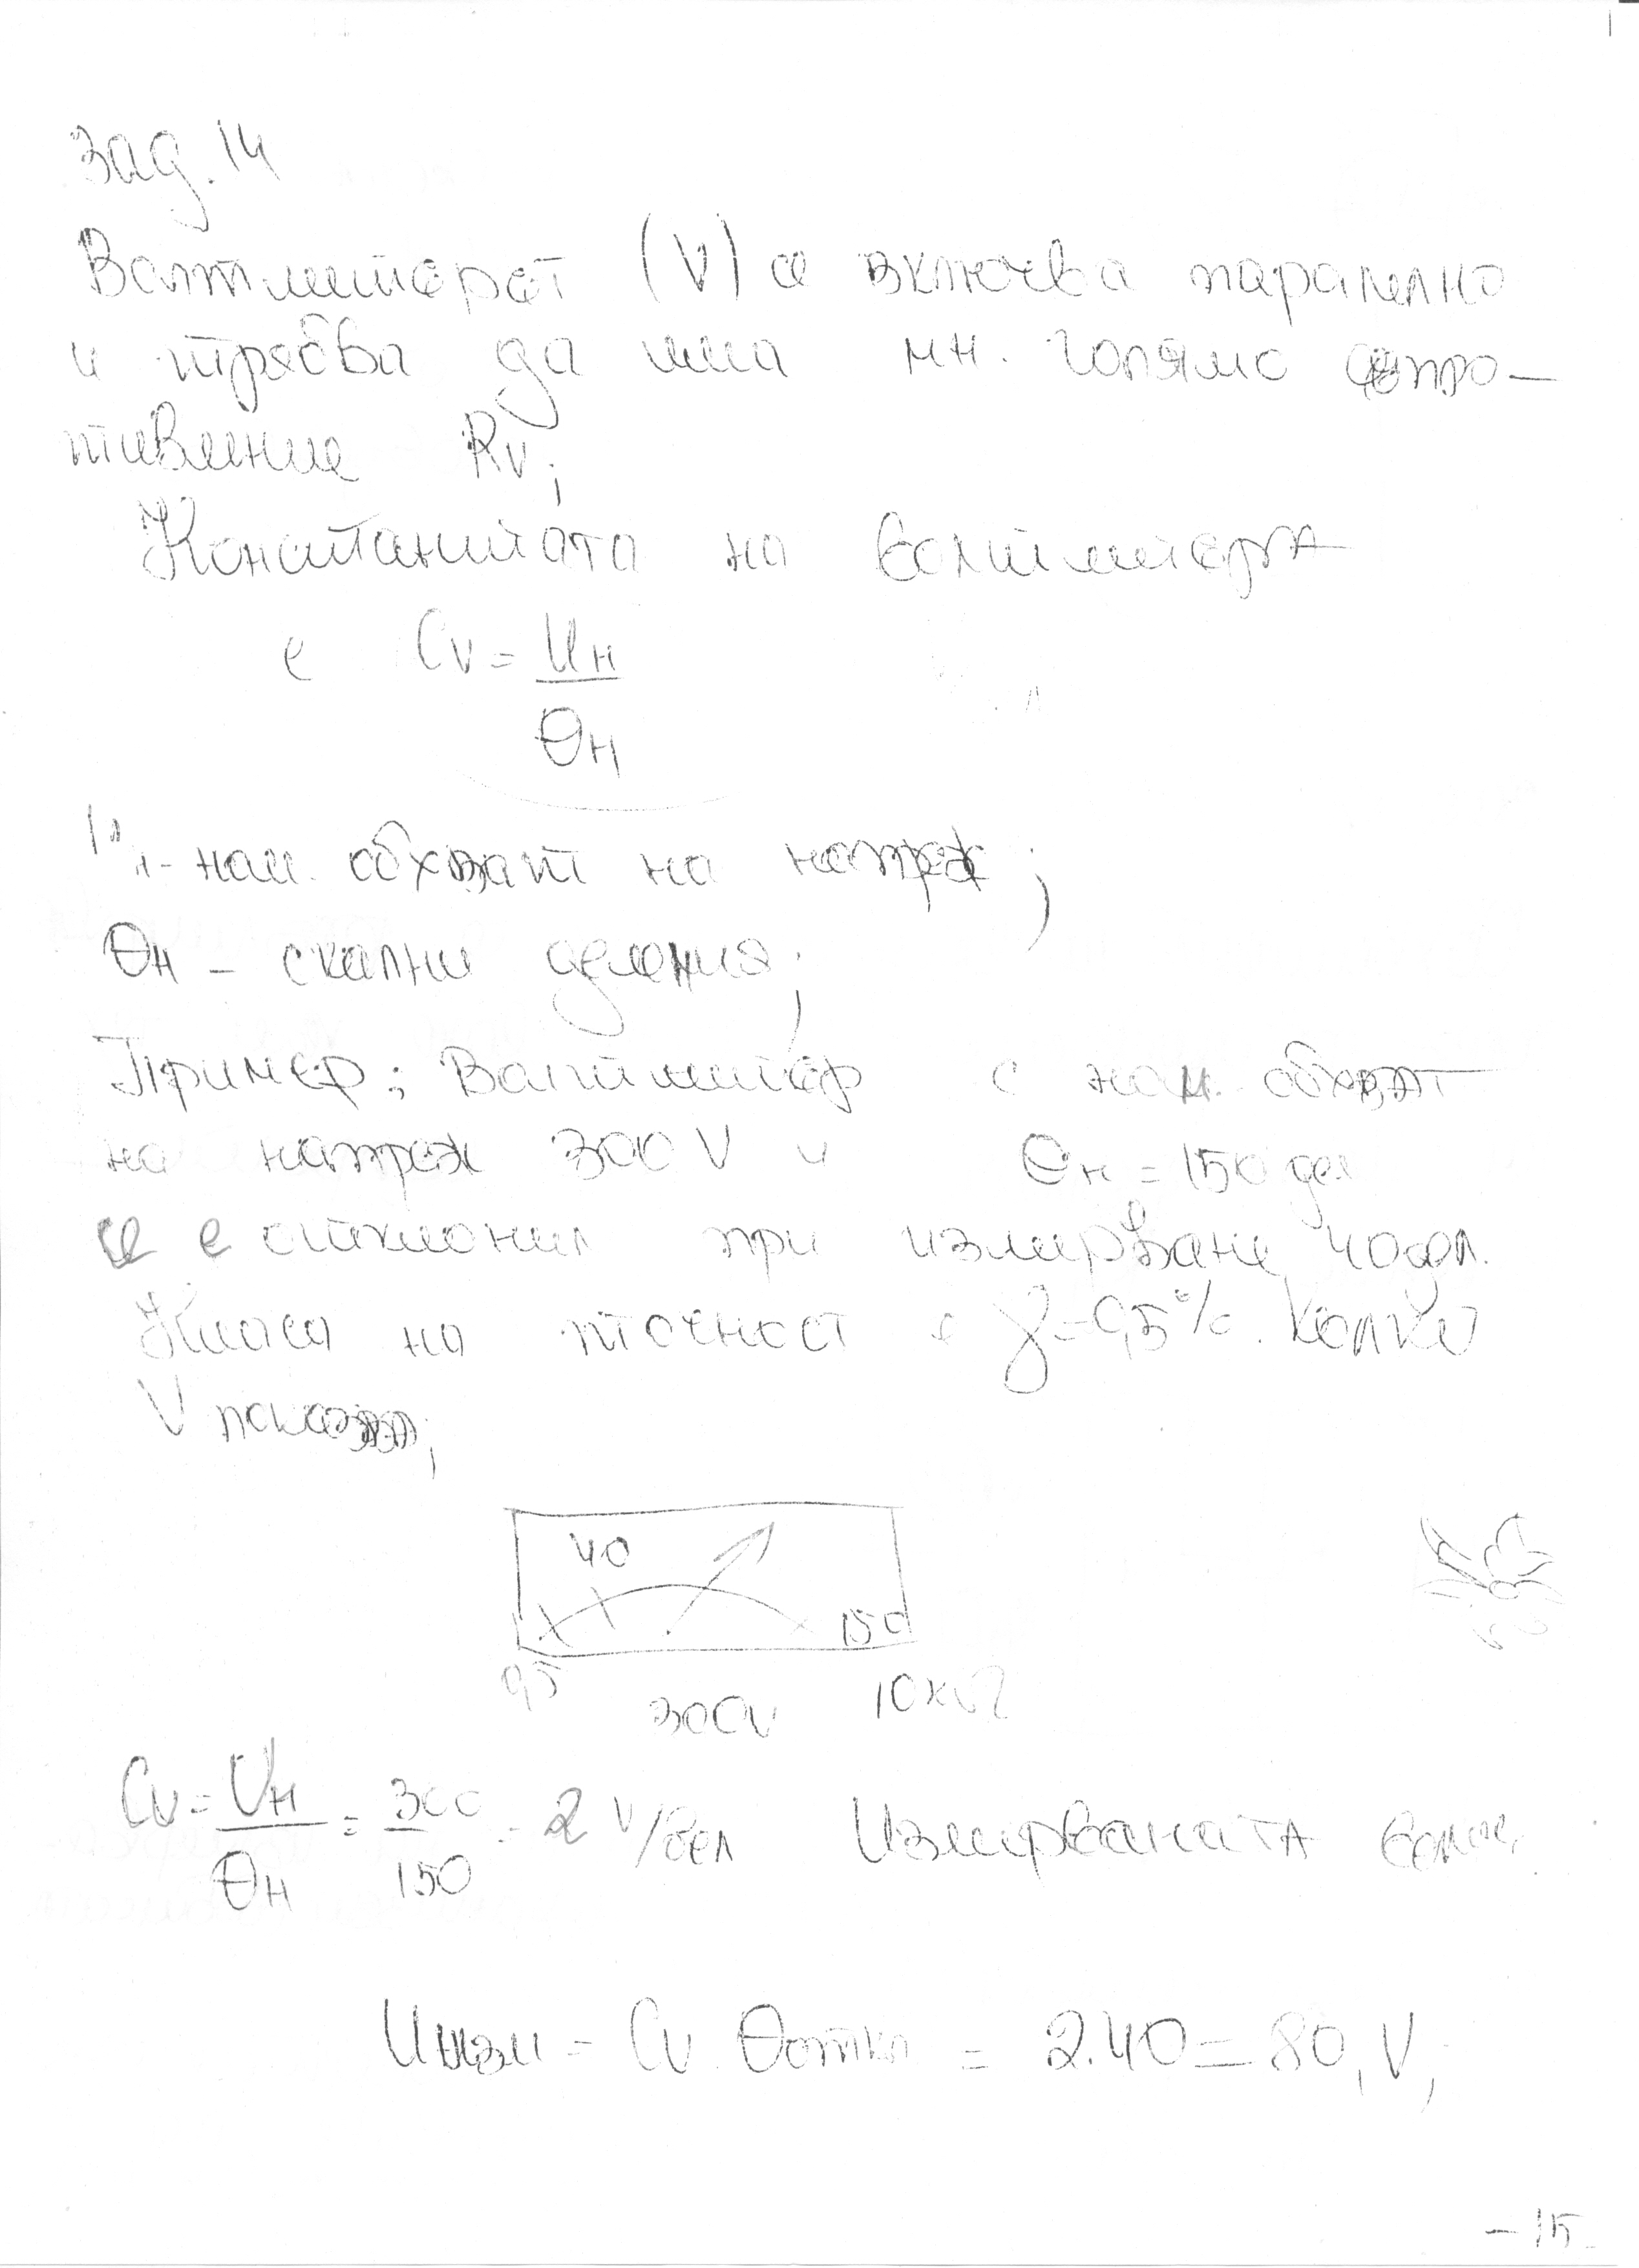 Зад. 14
Волтметърът (V) се включва паралелно
и трябва да има мн. голямо съпро-
тивление Rv;
Константата на волтметъра
е Cv = Uн / Θн
- ном. обхват на напреж;
Θн - скални деления;
Пример: Волтметър с ном. обхват
на напреж 300 V и Θн = 150 дел
се е отклонил при измерване 40 дел.
Класа на точност е γ = 0,5%. Колко
V показва;
40
150
0,5
300V 10
Cv = Uн / Θн = 300 / 150 = 2 V/дел Измерваната
Uизм = Cv . Θоткл = 2.40 = 80, V,
- 15